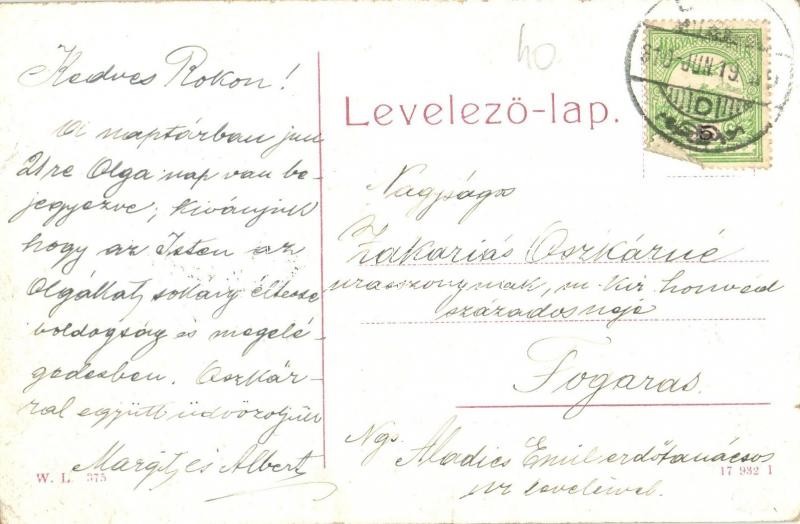 Kedves Rokon!
A naptárban jun
21re Olga nap van be-
jegyezve; kivánjuk
hogy az Isten az
Olgákat sokáig éltesse
boldogság és megelé-
gedésben. Oszkár-
ral együtt üdvözöljük
Margit és Albert
W. L. 375
40
Levelező-lap.
910 JUN 19
D
5
Nagysága
Zakariás Oszkárné
urasszonynak, m. kir honvéd
századosnejé
Fogaras.
Ngs. Emil erdőtanácsos
ur levelével.
17 932 1